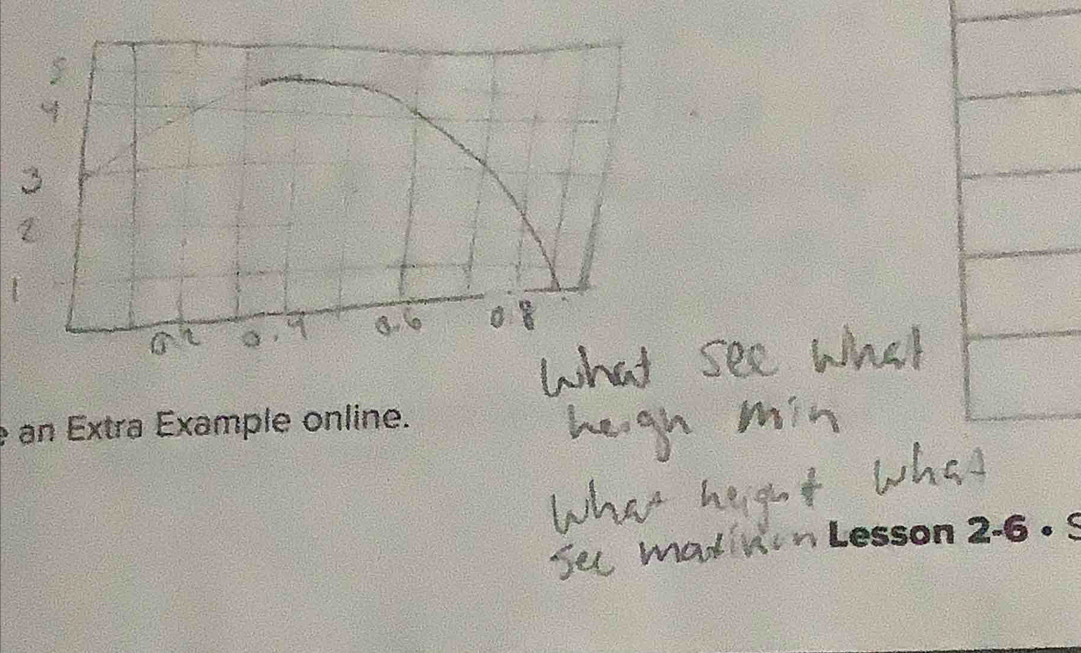 5
4
3
2
1
0.2 0.4 0.6 0.8
What see what
heigh min
e an Extra Example online.
What height what
see maximon Lesson 2-6 • S